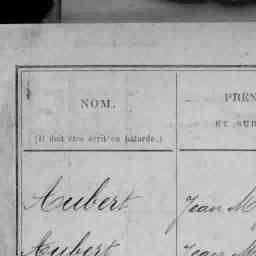 NOM.
(Il doit être écrit en bâtarde.)
PRÉN
ET SUR
Aubert
Jean M
Aubert
Jean M